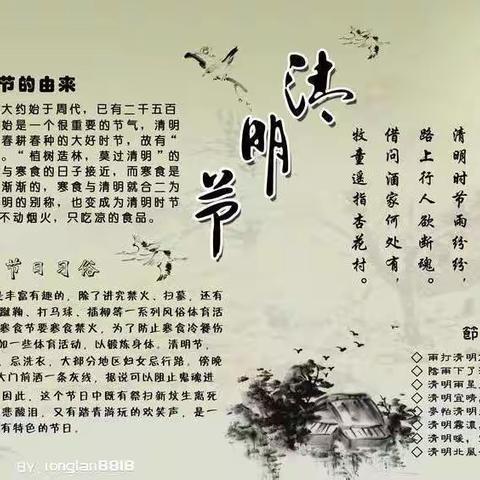 清明节
节的由来
大约始于周代，已有二千五百
始是一个很重要的节气，清明
春耕春种的大好时节，故有“
。“植树造林，莫过清明”的
与寒食的日子接近，而寒食是
渐渐的，寒食与清明就合二为
明的别称，也变成为清明时节
不动烟火，只吃凉的食品。
节日习俗
是丰富有趣的，除了讲究禁火、扫墓，还有
蹴鞠、打马球、插柳等一系列风俗体育活
寒食节要寒食禁火，为了防止寒食冷餐伤
加一些体育活动，以锻炼身体。清明节，
、忌洗衣，大部分地区妇女忌行路。傍晚
大门前洒一条灰线，据说可以阻止鬼魂进
因此，这个节日中既有祭扫新坟生离死
悲酸泪，又有踏青游玩的欢笑声，是一
有特色的节日。
清明时节雨纷纷，
路上行人欲断魂。
借问酒家何处有，
牧童遥指杏花村。
節
◇ 雨打清明
◇ 陰雨下了清
◇ 清明雨星
◇ 清明宜晴
◇ 麥怕清明
◇ 清明霧濃
◇ 清明暖，
◇ 清明北風
By: longlan8818